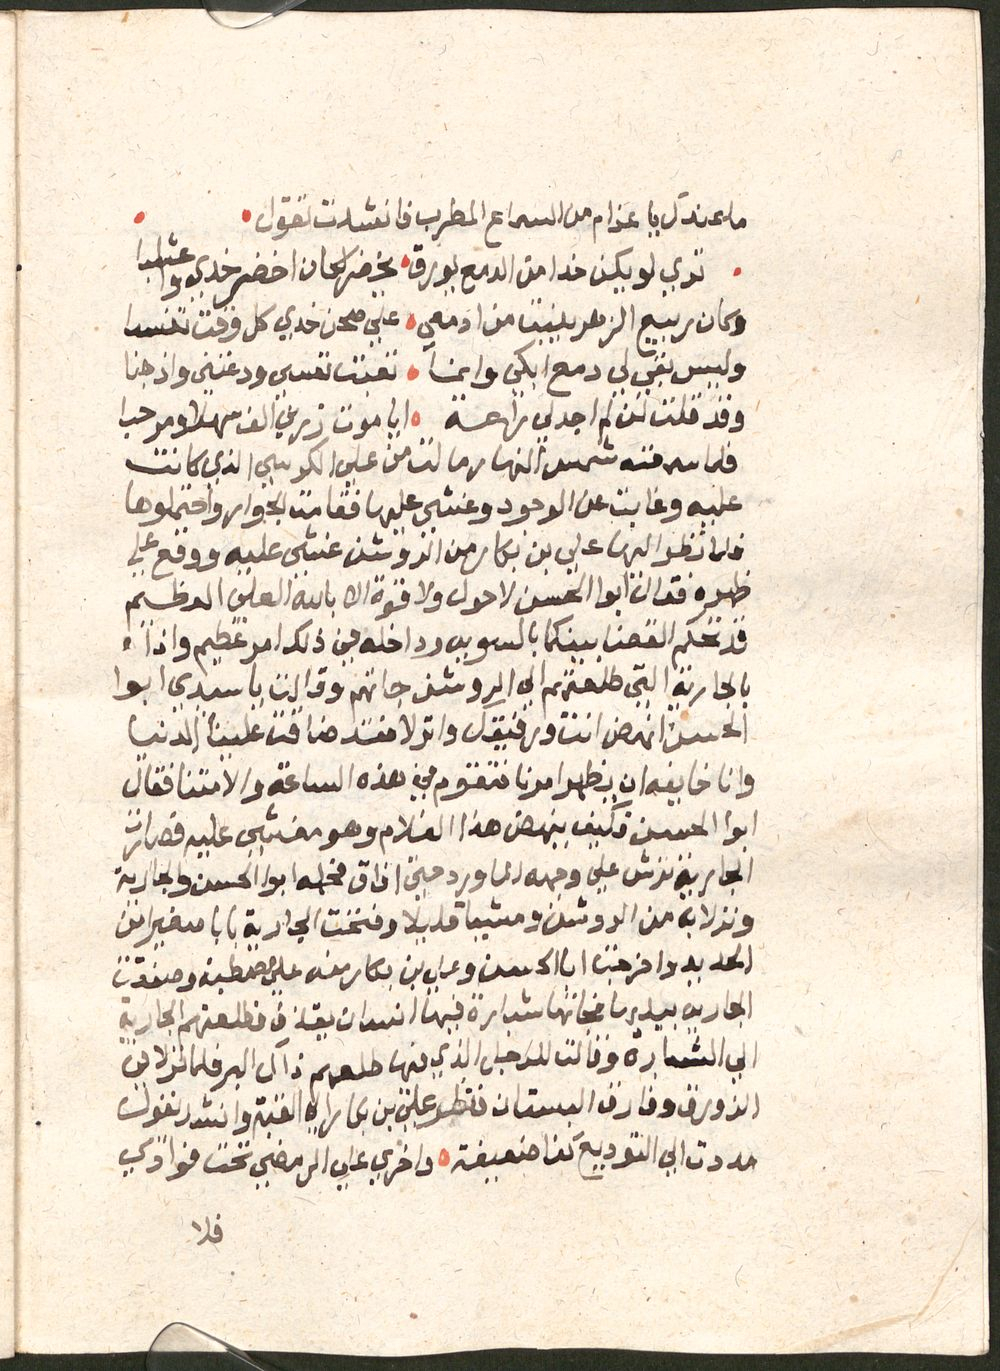 ما عندك يا غرام من السماع المطرب فانشدت تقول
تري لو يكن خدا من الدمع لورق بخضر كان اخضر خدي واعشبا
وكان ربيع الزهر ينبت من ادمعي علي صحن خدي كل وقت
وليس بقي لي دمع ابكي وانما تفتت نفسي ودعتني واذهبا
وقد قلت لئن لم اجد لي راحة ايا موت زرني الف سهلا ومرحبا
فلما سمعته شمس النهار مالت من علي الكرسي الذي كانت
عليه وغابت عن الوجود وغشي عليها فقامت الجوار واحتملوها
فلما نظر اليها علي بن بكار من الروشن غشي عليه ووقع علي
ظهره فقال ابوا الحسن لا حول ولا قوة الا بالله العلي العظيم
قد تحكم القضا بينكما بالسويه وداخله من ذلك امر عظيم واذا
بالجارية التي طلعتهم الي الروشن جاتهم وقالت يا سيدي ابوا
الحسن انهض انت ورفيقك وانزلا فقد ضاقت علينا الدنيا
وانا خايفه ان يظهر امرنا فتقوم في هذه الساعة والا متنا فقال
ابوا الحسن وكيف ينهض هذا الغلام وهو مغشي عليه فصارت
الجارية ترش علي وجهه الماورد حتي افاق فحمله ابوا الحسن والجارية
ونزلا به من الروشن ومشيا قليلا وفتحت الجارية بابا صغيرا من
الحديد واخرجت ابا الحسن وعلي بن بكار منه علي مصطبة وصفقت
الجاريه بيديها فجاتها شبارة فيها انسان يقذف فطلعتهم الجارية
الي الشبارة وقالت للرجل الذي فيها طلعهم ذاك البر فلما نزلا في
الزورق وفارق البستان فنظر علي بن بكار الي القبة وانشد يقول
مددت الي التوديع كفا ضعيفة واخري علي الرمضي تحت فوادي
فلا